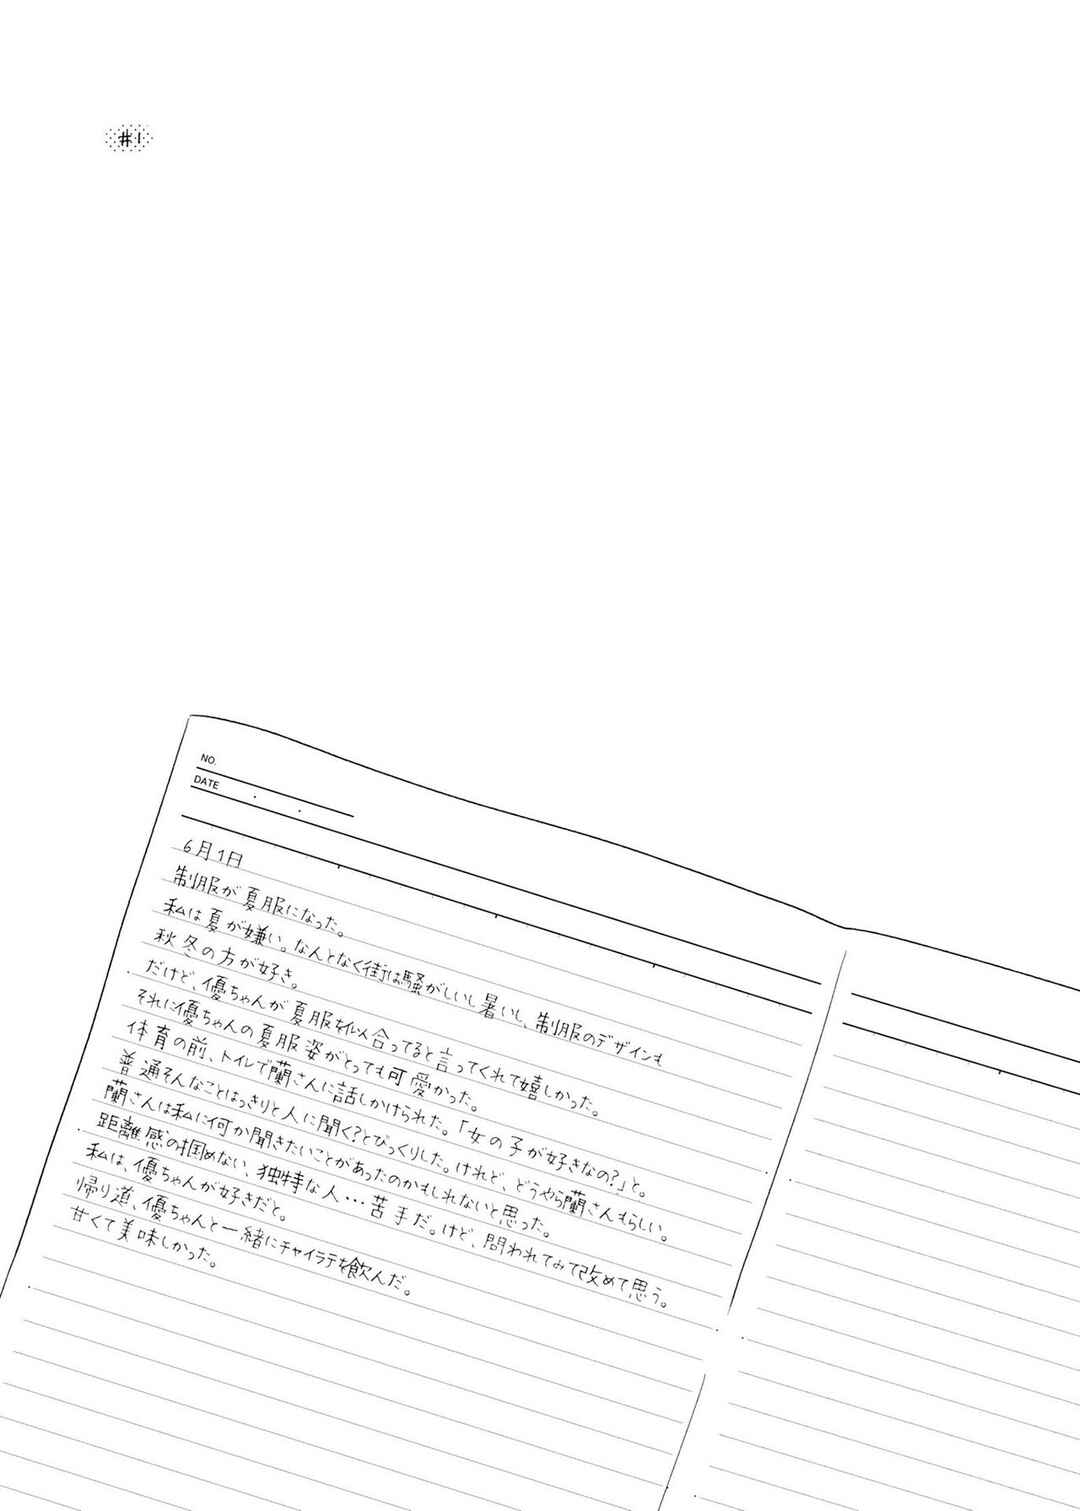 #1
NO.
DATE
6月1日
制服が夏服になった。
私は夏が嫌い。なんとなく街は騒がしいし暑いし、制服のデザインも
秋冬の方が好き。
だけど、優ちゃんが夏服を似合ってると言ってくれて嬉しかった。
それに優ちゃんの夏服姿がとっても可愛かった。
体育の前、トイレで蘭さんに話しかけられた。「女の子が好きなの?」と。
普通そんなことはっきりと人に聞く?とびっくりした。けれど、どうやら蘭さんもらしい。
蘭さんは私に何か聞きたいことがあったのかもしれないと思った。
距離感の掴めない、独特な人…苦手だ。けど、問われてみて改めて思う。
私は、優ちゃんが好きだと。
帰り道、優ちゃんと一緒にチャイラテを飲んだ。
甘くて美味しかった。